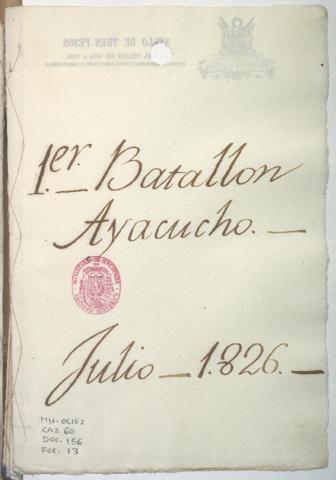 SELLO DE TRES PESOS
1.er Batallon
Ayacucho. —
Julio — 1.826. —
MH-OL152
CAJ. 60
DOC. 156
FOL. 13